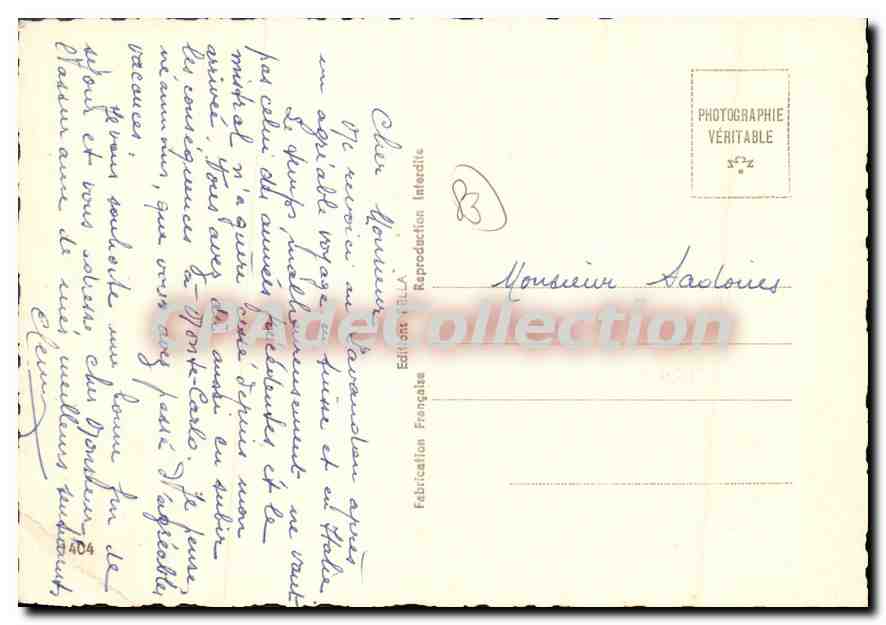 Cher Monsieur
Me revoici au Lavandou après
un agréable voyage en Suisse et en Italie.
Le temps, malheureusement ne vaut
pas celui des années précédentes, et le
mistral n'a guère cessé depuis mon
arrivée. Vous avez dû aussi en subir
les conséquences à Monte-Carlo. Je pense,
néanmoins, que vous avez passé d'agréables
vacances.
Je vous souhaite une bonne fin de
séjour et vous adresse cher Monsieur,
l'assurance de mes meilleurs sentiments
404
Editions RELLA
Fabrication Française Reproduction Interdite
PHOTOGRAPHIE
VÉRITABLE
83
Monsieur Sadoires
CPAdeCollection